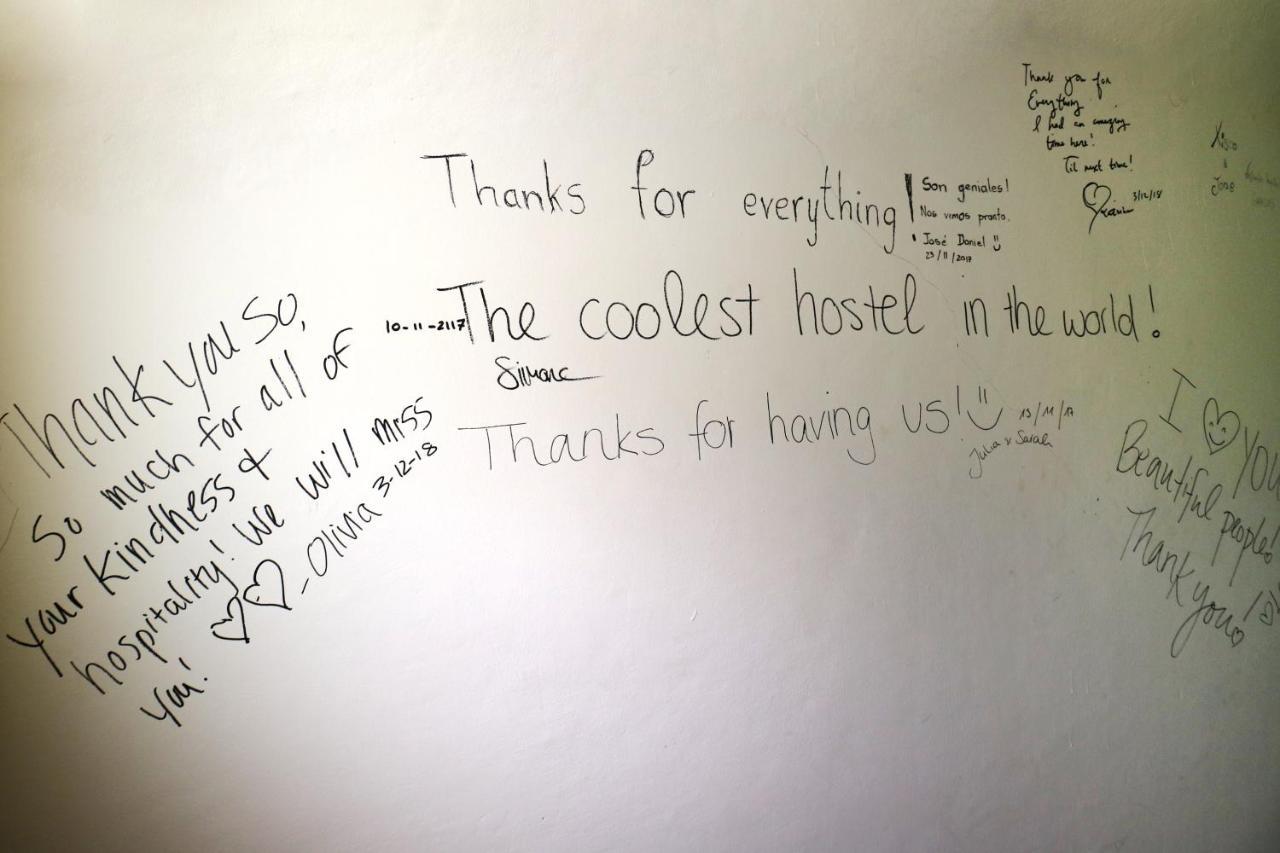 Thank you so,
so much for all of
your kindness &
hospitality! We will miss
you!
- Olivia 3-12-18
Thanks for everything!
10-11-2117
The coolest hostel in the world!
Simone
Thanks for having us!
13/11/17
Julia & Sarah
Son geniales!
Nos vimos pronto.
José Daniel
23/11/2017
Thank you for
Everything
I had an amazing
time here!
Til next time!
3/12/18
Jose
I YOU
Beautiful people!
Thank you!